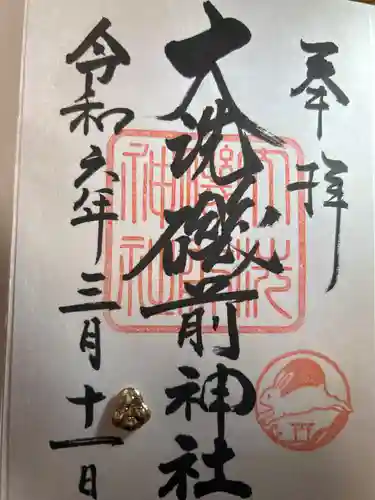 奉拝
大洗磯前神社
令和六年三月十一日
大洗磯前神社